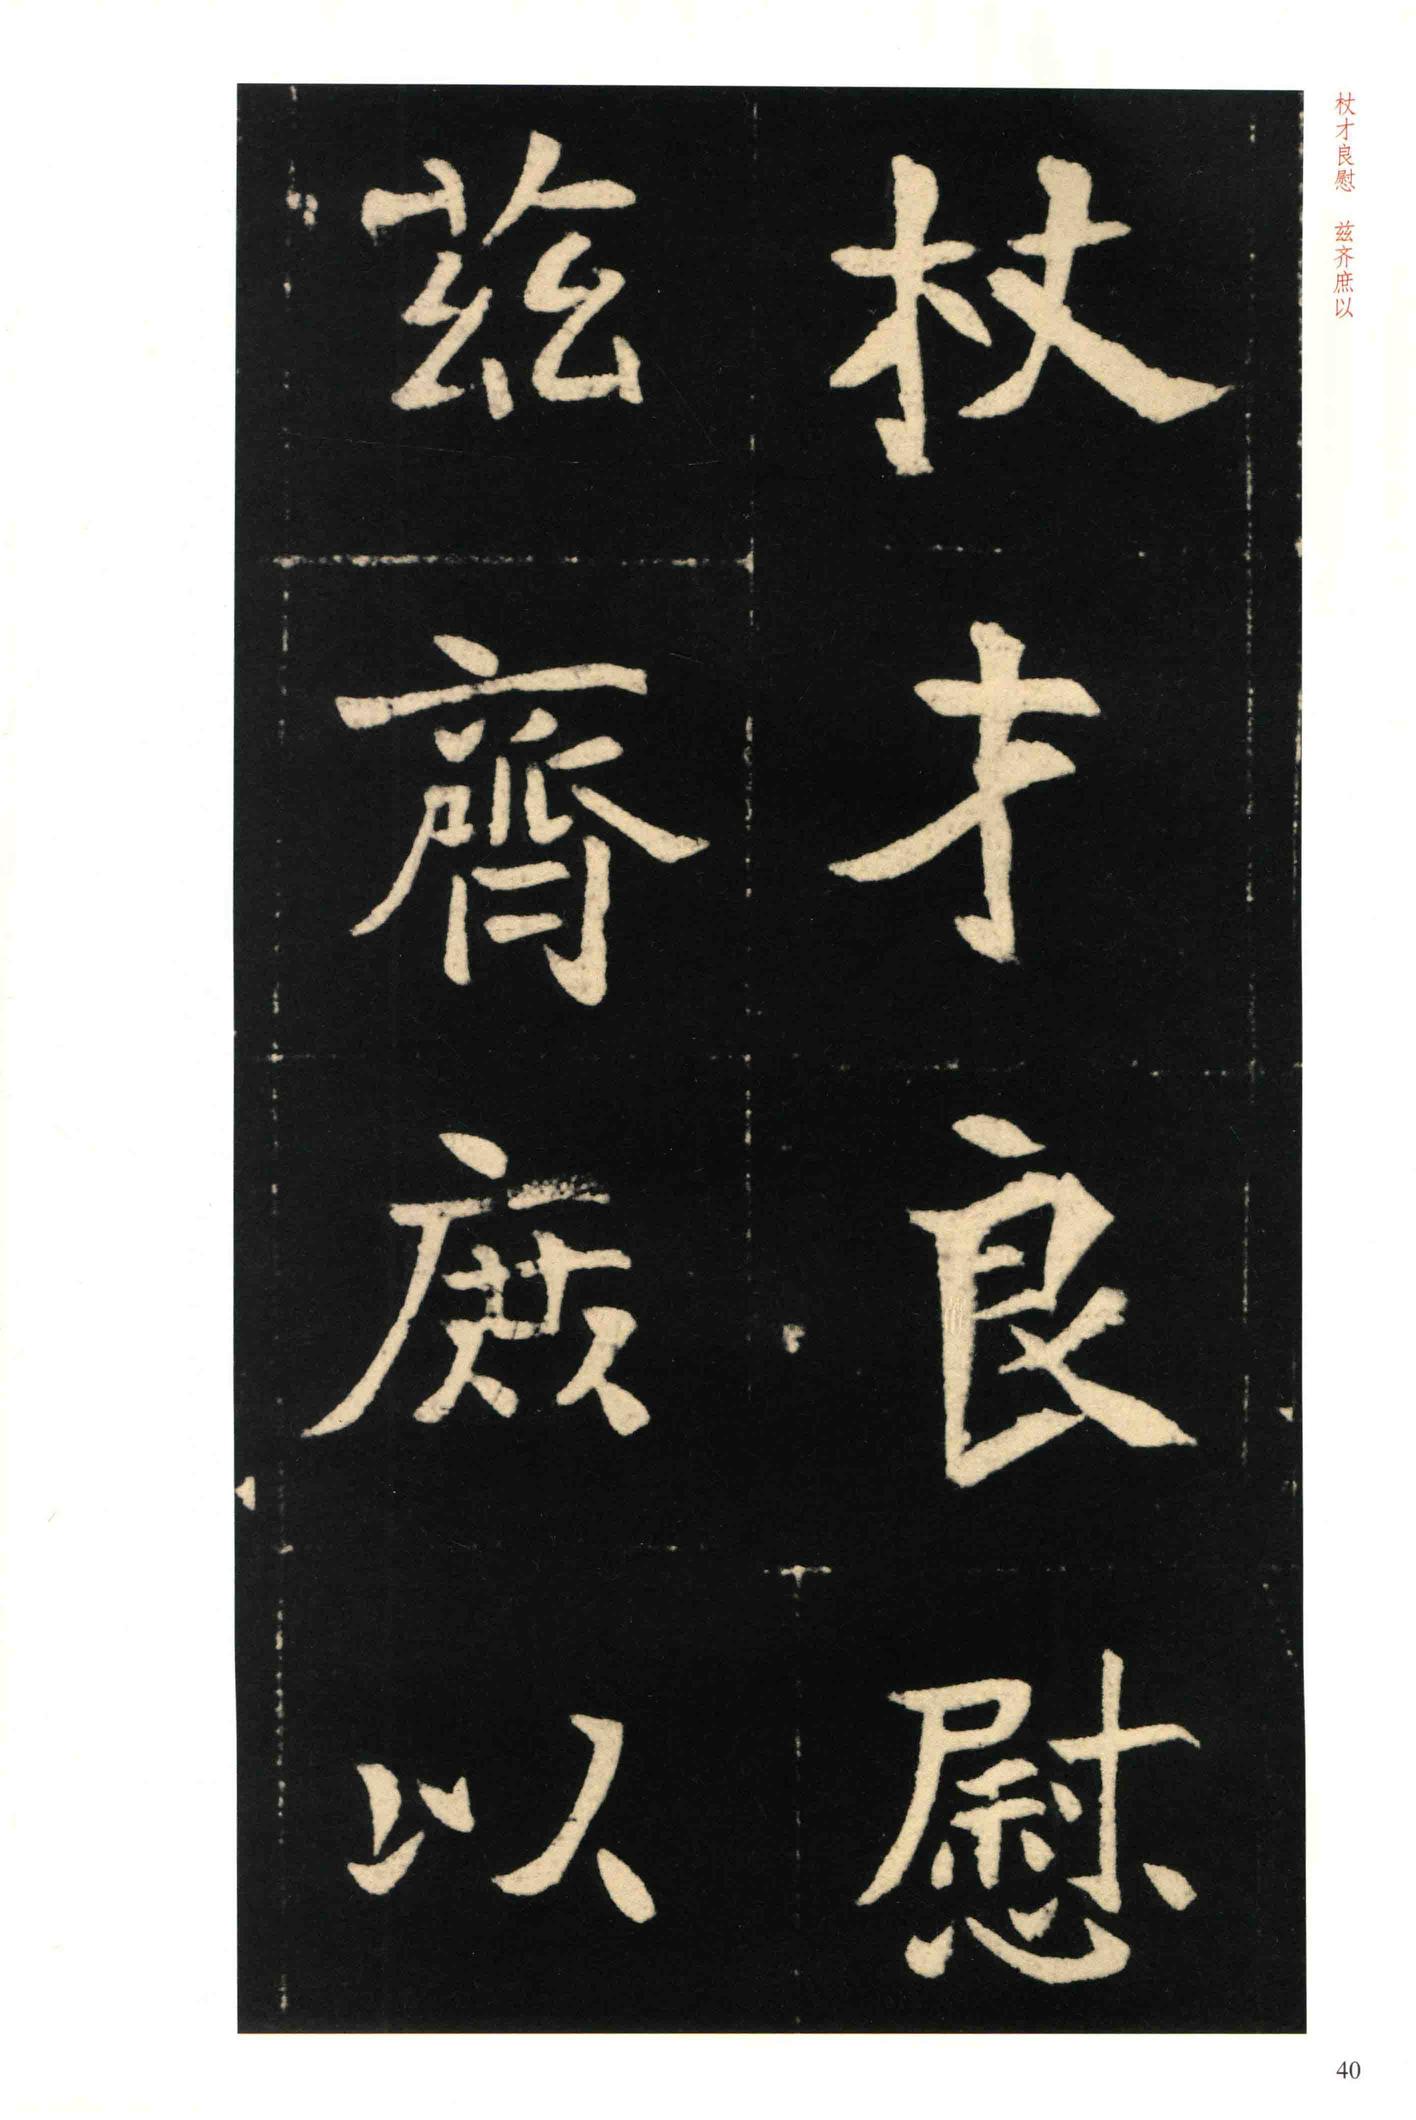 杖才良慰
茲齊庶以
杖才良慰 兹齐庶以
40